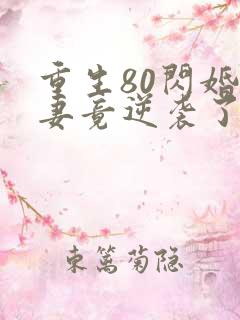 重生80閃婚
妻竟逆袭了
東篱菊隐